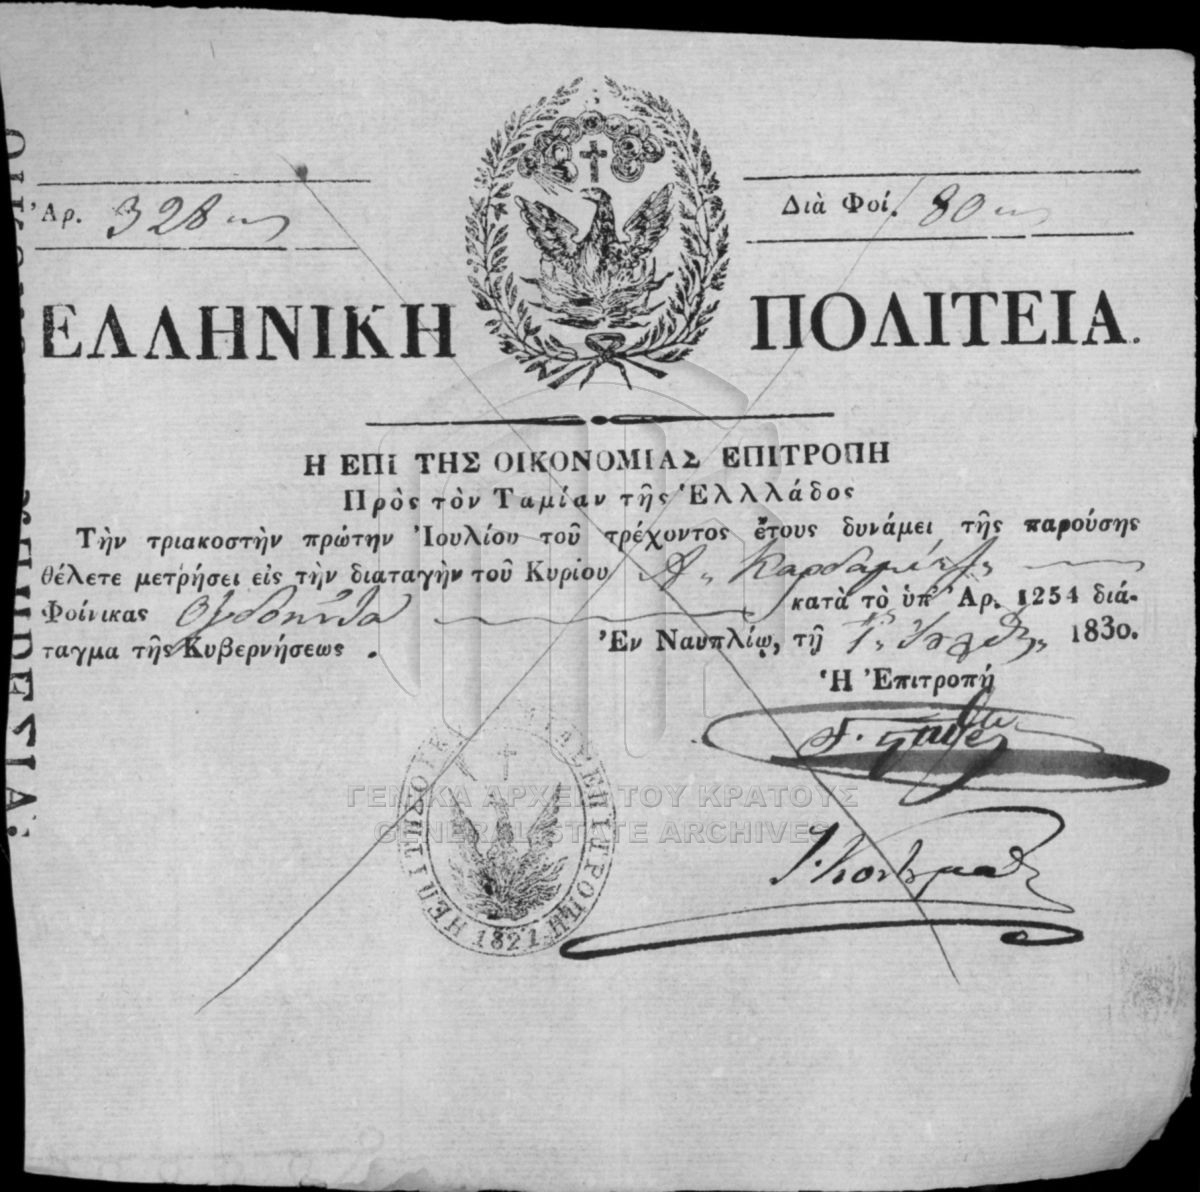 Ἀρ. 328
Διὰ Φοί. 80
ΕΛΛΗΝΙΚΗ ΠΟΛΙΤΕΙΑ.
Η ΕΠΙ ΤΗΣ ΟΙΚΟΝΟΜΙΑΣ ΕΠΙΤΡΟΠΗ
Πρὸς τὸν Ταμίαν τῆς Ἑλλλάδος
Τὴν τριακοστὴν πρώτην Ἰουλίου τοῦ τρέχοντος ἔτους δυνάμει τῆς παρούσης
θέλετε μετρήσει εἰς τὴν διαταγὴν τοῦ Κυρίου Α.
Φοίνικας Ὀγδοήντα κατὰ τὸ ὑπ' Ἀρ. 1254 διά-
ταγμα τῆς Κυβερνήσεως. Ἐν Ναυπλίῳ, τῇ 1830.
Ἡ Ἐπιτροπή
Η ΕΠΙ ΤΗΣ ΟΙΚ ΑΣ ΕΠΙΤΡΟΠΗ
1821
ΓΕΝΙΚΑ ΑΡΧΕΙΑ ΤΟΥ ΚΡΑΤΟΥΣ
GENERAL STATE ARCHIVES